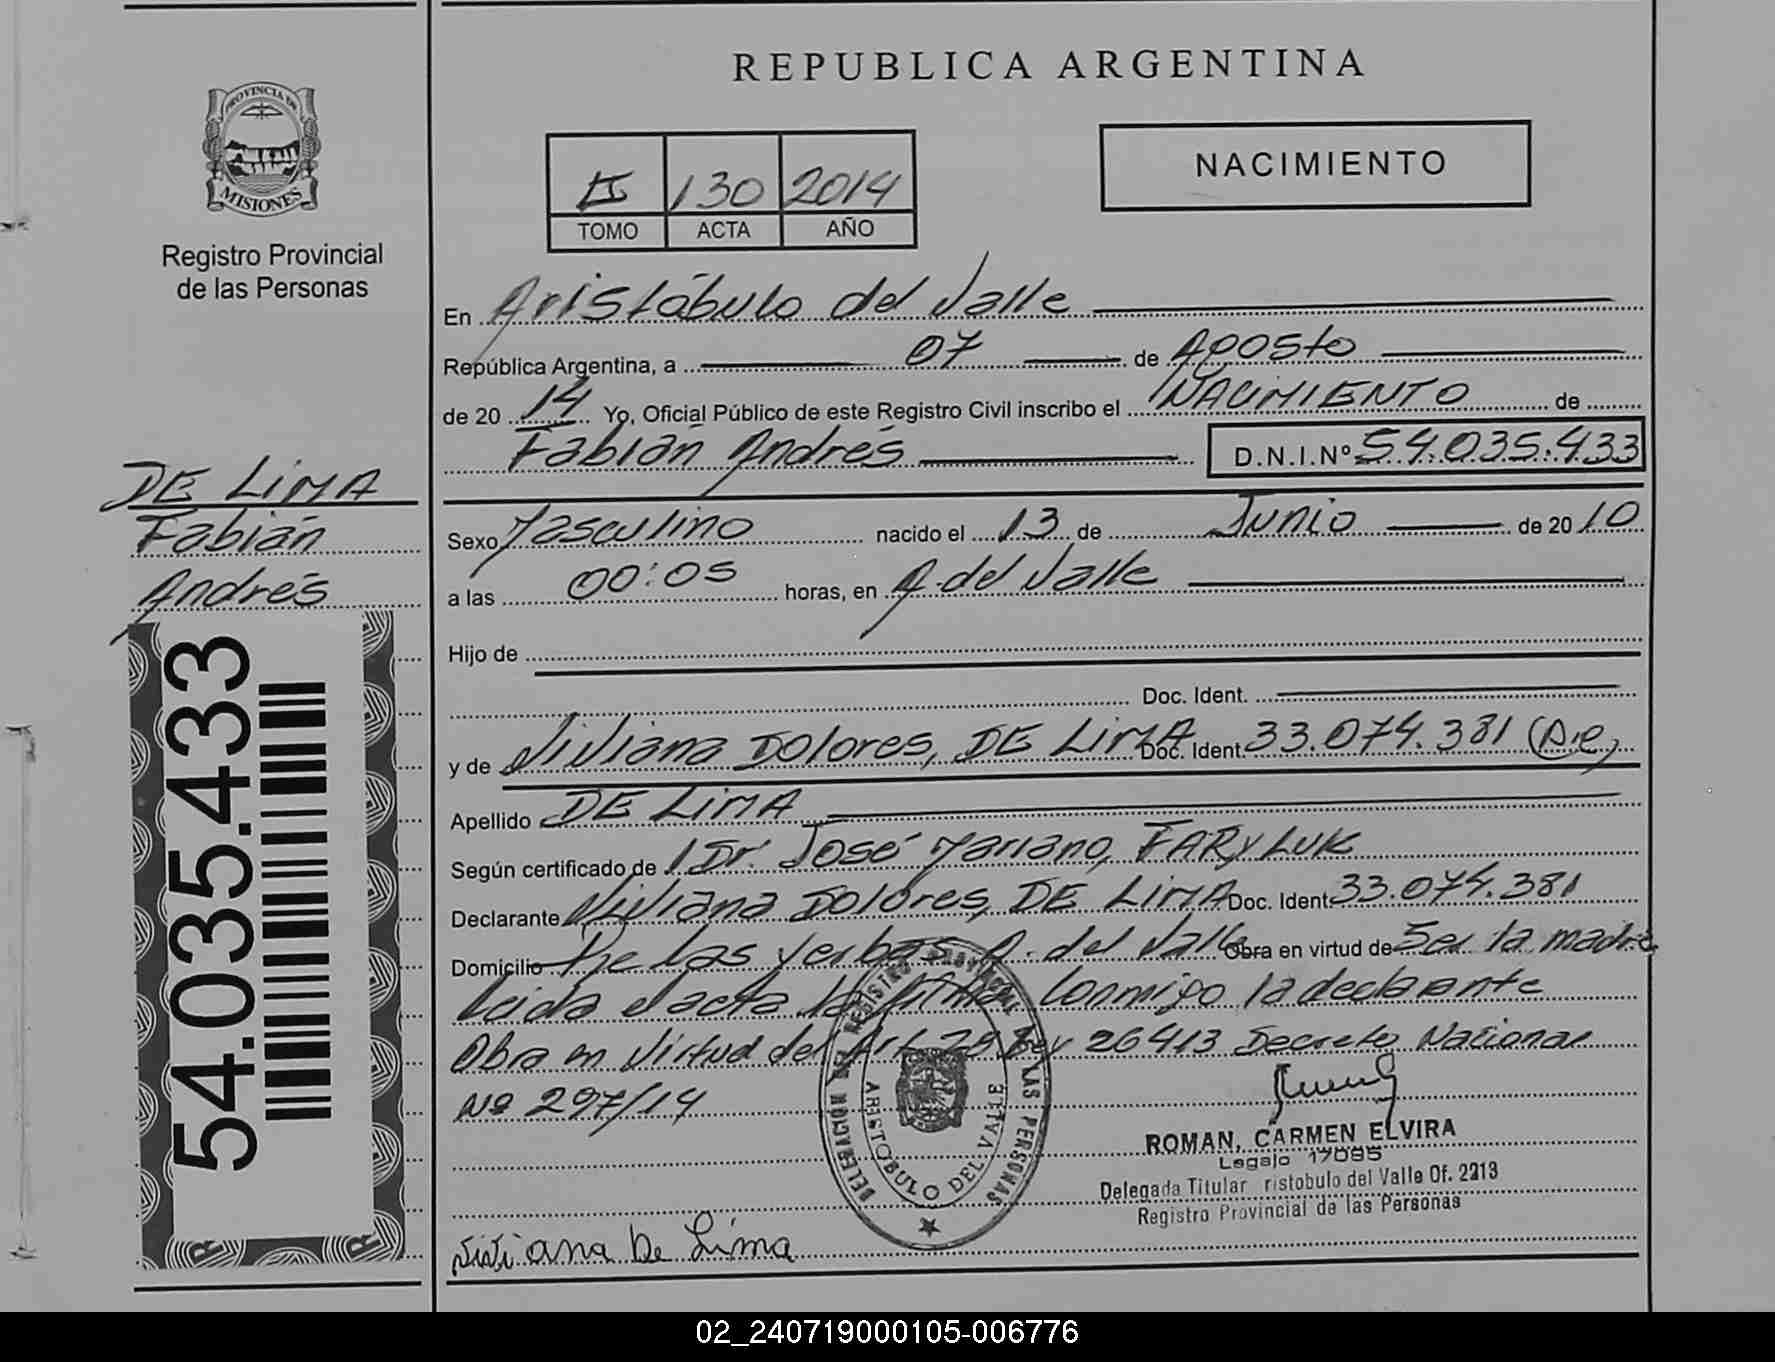 REPUBLICA ARGENTINA
PROVINCIA DE
MISIONES
Registro Provincial
de las Personas
II 130 2014
TOMO ACTA AÑO
NACIMIENTO
En Aristóbulo del Valle
República Argentina, a 07 de Agosto
de 2014 Yo, Oficial Público de este Registro Civil inscribo el NACIMIENTO de
Fabián Andrés D.N.I.Nº 54.035.433
DE LIMA
Fabián
Andrés
54.035.433
Sexo Masculino nacido el 13 de Junio de 2010
a las 00:05 horas, en A. del Valle
Hijo de
Doc. Ident.
y de Viviana Dolores, DE LIMA Doc. Ident. 33.074.381 (A.e)
Apellido DE LIMA
Según certificado de Dr. José Mariano, FARYLUK
Declarante Viviana Dolores, DE LIMA Doc. Ident. 33.074.381
Domicilio De las yerbas A. del Valle Obra en virtud de Ser la madre
Leida el acta la firma Conmigo la declarante
Obra en Virtud del Art 28 Ley 26413 Decreto Nacional
Nº 297/14
DELEGACION DEL REGISTRO PROVINCIAL DE LAS PERSONAS
ARISTOBULO DEL VALLE
ROMAN, CARMEN ELVIRA
Legajo 17095
Delegada Titular ristobulo del Valle Of. 2213
Registro Provincial de las Personas
Viviana De Lima
02_240719000105-006776